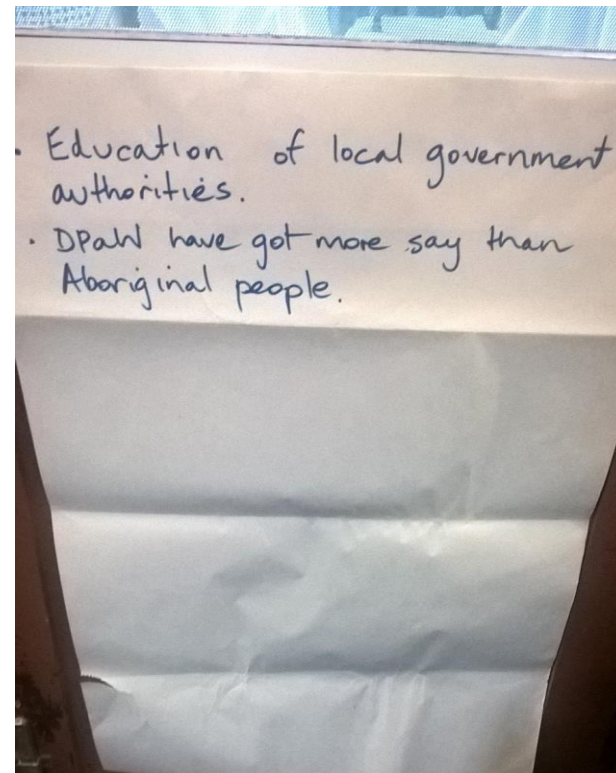 • Education of local government
authorities.
• DPaW have got more say than
Aboriginal people.